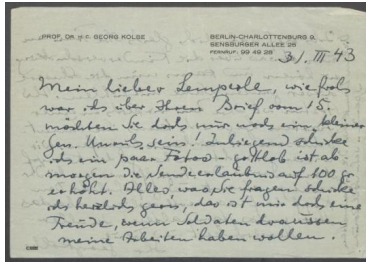 PROF. DR. H. C. GEORG KOLBE
BERLIN-CHARLOTTENBURG 9,
SENSBURGER ALLEE 25
FERNRUF: 99 49 28
31. III 43
Mein lieber Lemperle, wie froh
war ich über Ihren Brief vom 15.
möchten Sie doch nur noch ein kleiner
Gen. sein! Inliegend schicke
ich ein paar Fotos - gottlob ist ab
morgen die Sendeerlaubnis auf 100 gr
erhöht. Alles was Sie fragen schicke
ich herzlich gern, das ist mir doch eine
Freude, wenn Soldaten draussen
meine Arbeiten haben wollen.